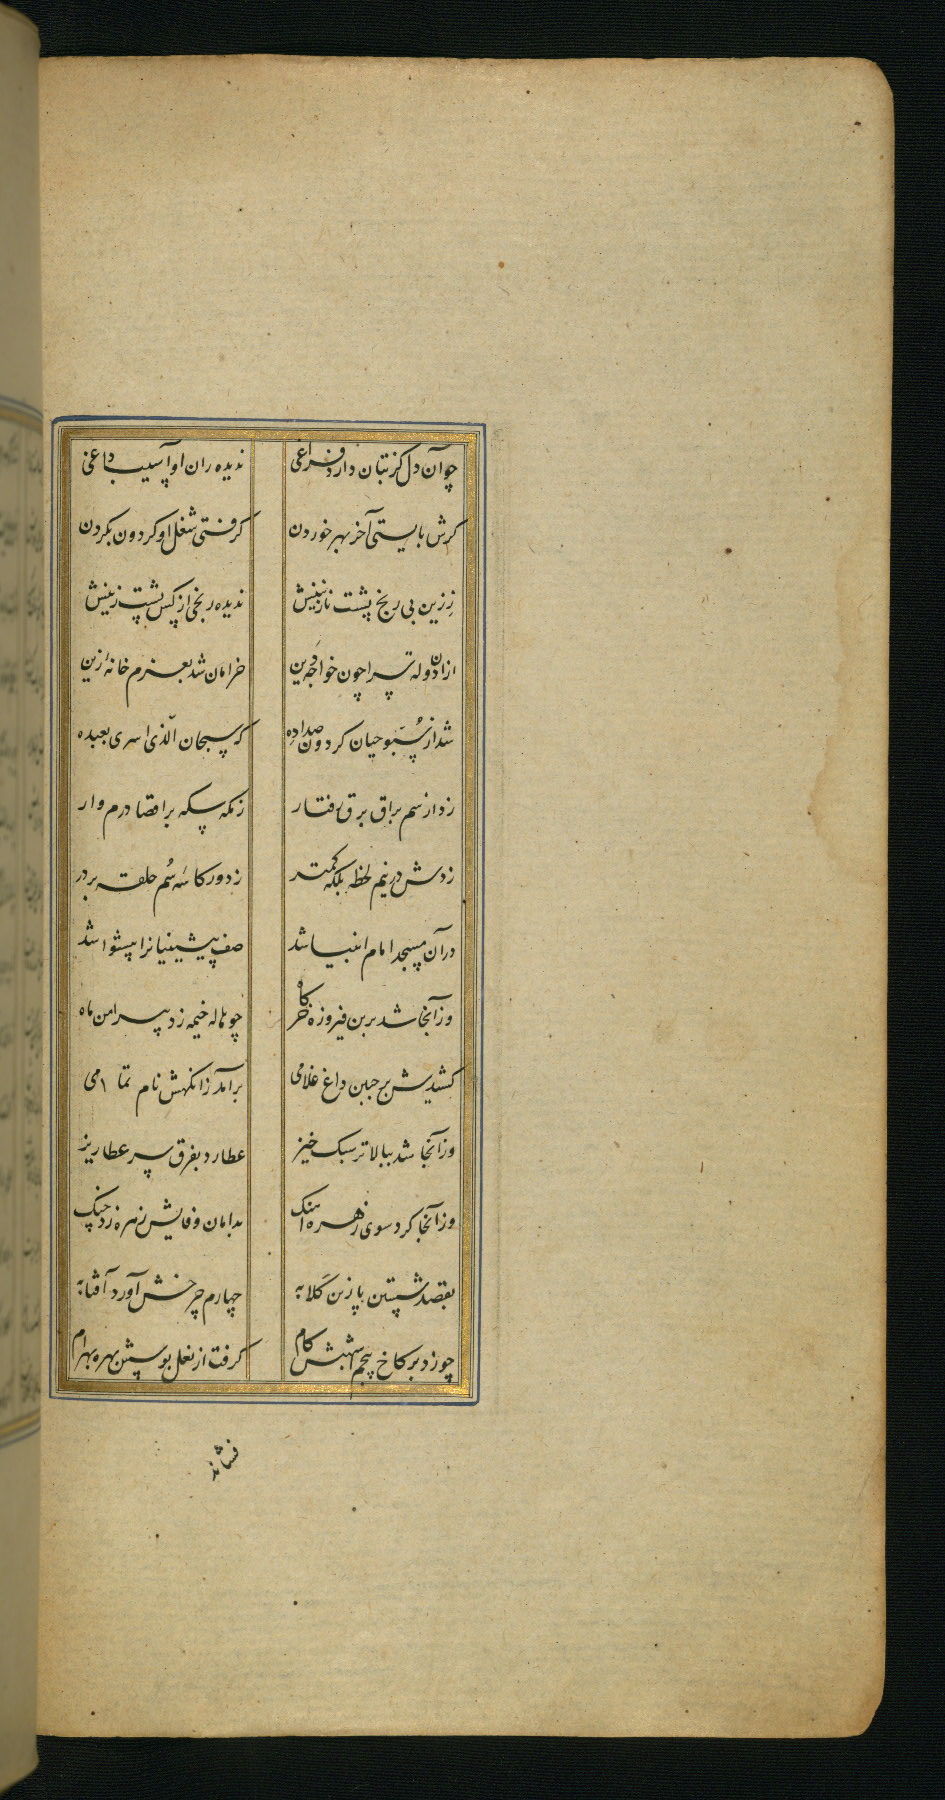 چو آن دل کز بتان دارد فراغی ندیده ران او آسیب داغی
کرش بایستی آخر بهر خوردن کرفتی شغل او کردون بکردن
ززین بی رنج پشت نازنینش ندیده رنجی از کس پشت زینش
ازان دولت سرا چون خواجه دین خرامان شد بعزم خانه زین
شد از سبوحیان کردون صداده که سبحان الذی اسری بعبده
زد از سم براق برق رفتار زمکه سکه بر اقصا درم وار
زدش در نیم لحظه بلکه کمتر زدور کاسه سُم حلقه بر در
در آن مسجد امام انبیا شد صف پیشینیانرا پیشوا شد
وز آنجا شد برین فیروزه خرکاه چو هاله خیمه زد پیرامن ماه
کشیدش بر جبین داغ غلامی برآمد زانکهش نام تمامی
وز آنجا شد ببالاتر سبک خیز عطارد بفرق سر عطاریز
وز آنجا کرد سوی زهره آهنک بدامان وفایش زهره زد چنک
بقصد شستن پا زین کلابه چهارم چرخش آورد آفتابه
چو زد بر کاخ پنجم شهبش کام کرفت از نعل بوسش بهره بهرام
فشاند